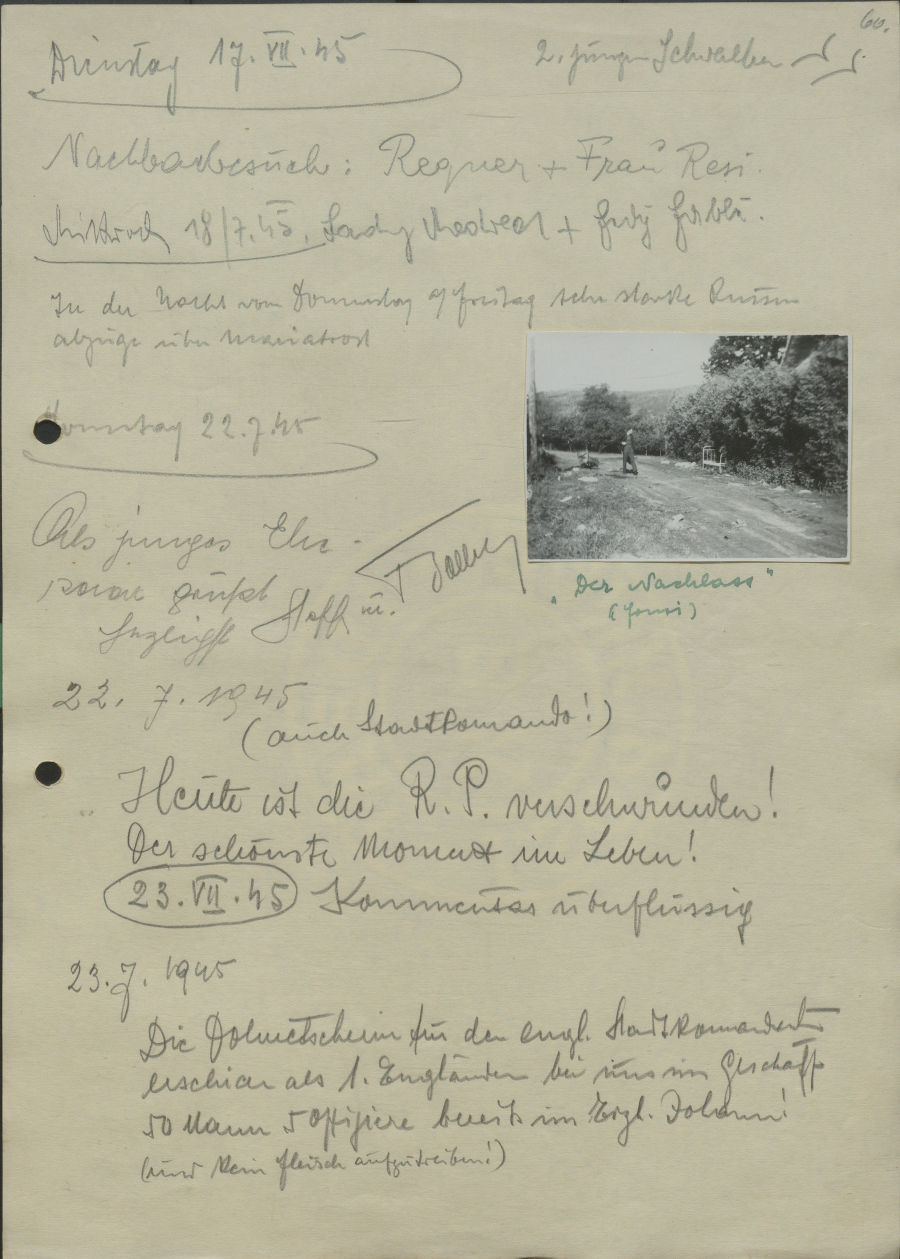 60.
Dienstag 17. VII. 45
2. jungen Schwalben
Nachbarbesuch: Regner + Frau Resi.
Mittwoch 18/7.45.
In der Nacht vom Donnerstag a/ Freitag sehr starke Russen
abzüge über Mariatrost
Sonntag 22.7.45
Als junges Ehe-
paar grüßt
Steff u.
"Der Nachlass"
22. 7. 1945
(auch Stadtkomando!)
Heute ist die R. P. verschwunden!
Der schönste Moment im Leben!
23. VII. 45 Kommentar überflüssig
23. 7. 1945
Die Dolmetscherin für den engl. Stadtkomandanten
erschien als 1. Engländer bei uns im Geschäft
50 Mann 5 Offiziere bereits im Erzh. Johann!
(und kein Fleisch aufzutreiben!)